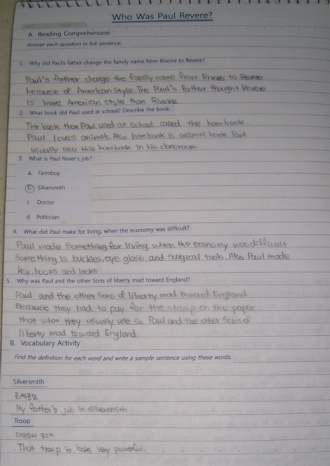 Who Was Paul Revere?
A. Reading Comprehension
Answer each question in full sentence.
1. Why did Paul's father change the family name from Rivoire to Revere?
Paul's father change the family name from Rivoire to Revere
because of American style. The Paul's father thought Revere
is more American style than Rivoire.
2. What book did Paul used at school? Describe the book.
The book that Paul used at school called the hornbook.
Paul loves animal. Also hornbook is animal book. Paul
usually see this hornbook in his classroom.
3. What is Paul Rever's job?
a. Farmboy
b. Silversmith
c. Doctor
d. Politician
4. What did Paul make for living, when the economy was difficult?
Paul made Something for living when the economy was difficult
Something is buckles, eye glass and surgical tools. Also Paul made
key, locks and
5. Why was Paul and the other Sons of liberty mad toward England?
Paul and the other Sons of liberty mad toward England
Because they had to pay for the stamp on the paper
that what they usually use so Paul and the other Sons of
liberty mad toward England.
B. Vocabulary Activity
Find the definition for each word and write a sample sentence using these words.
Silversmith
My father's job is silversmith
Troop
That troop is looks very powerful.